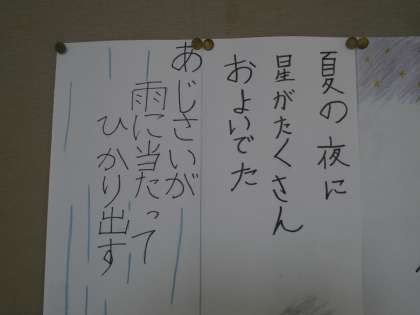 夏の夜に
星がたくさん
およいでた
あじさいが
雨に当たって
ひかり出す